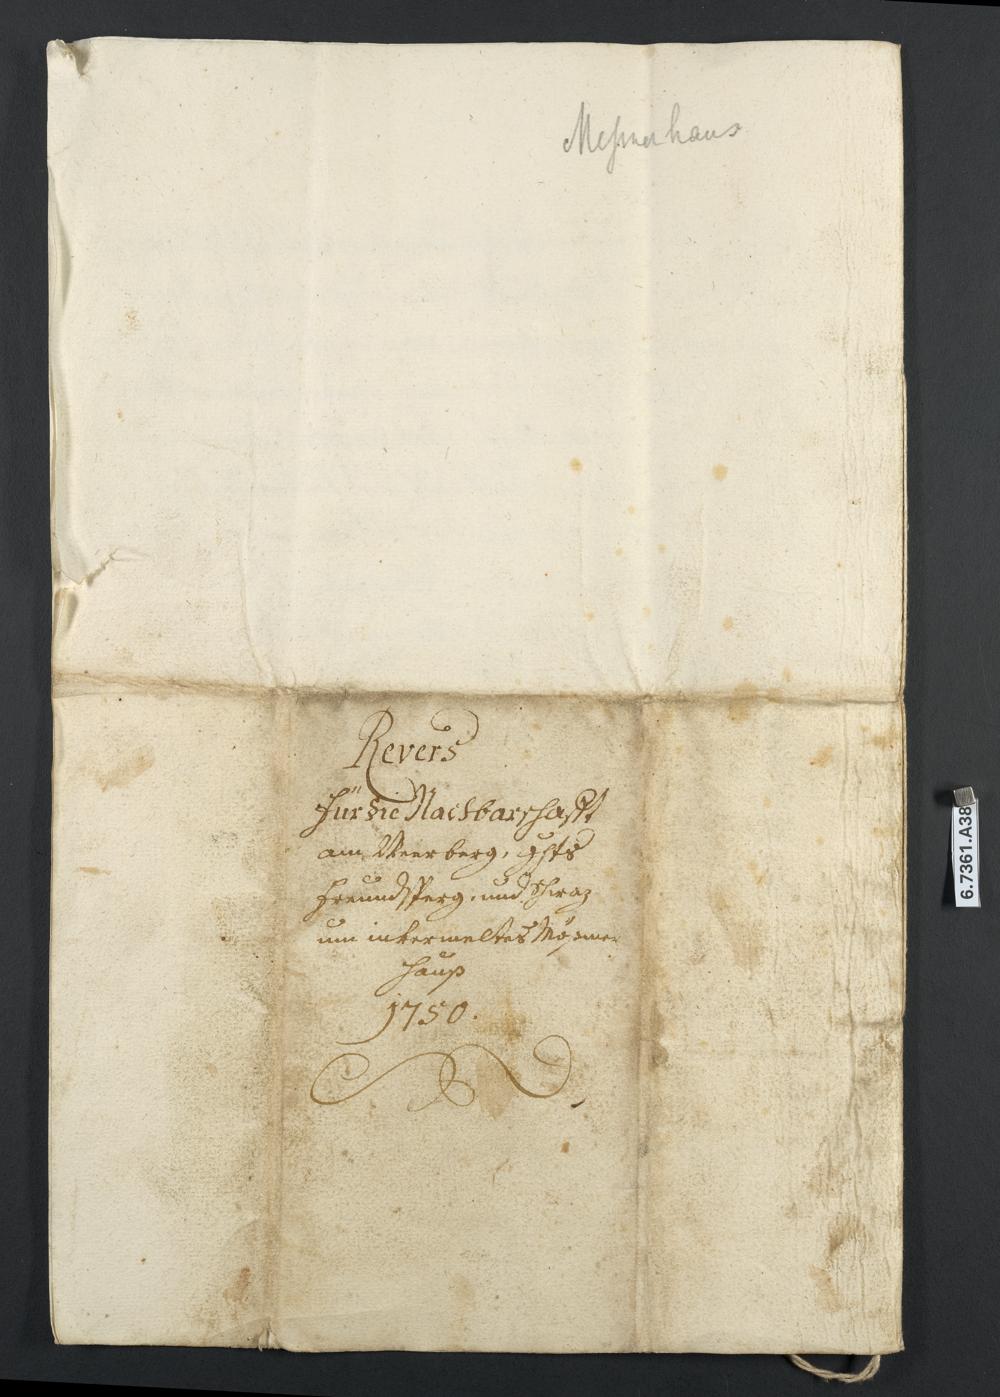 Meßnerhaus
Revers
Für die Nachbarschafft
am Weerberg, ghts
Freundsperg, und Schwaz
um inbermeltes Mößmer
Hauß
1750.
6.7361.A38